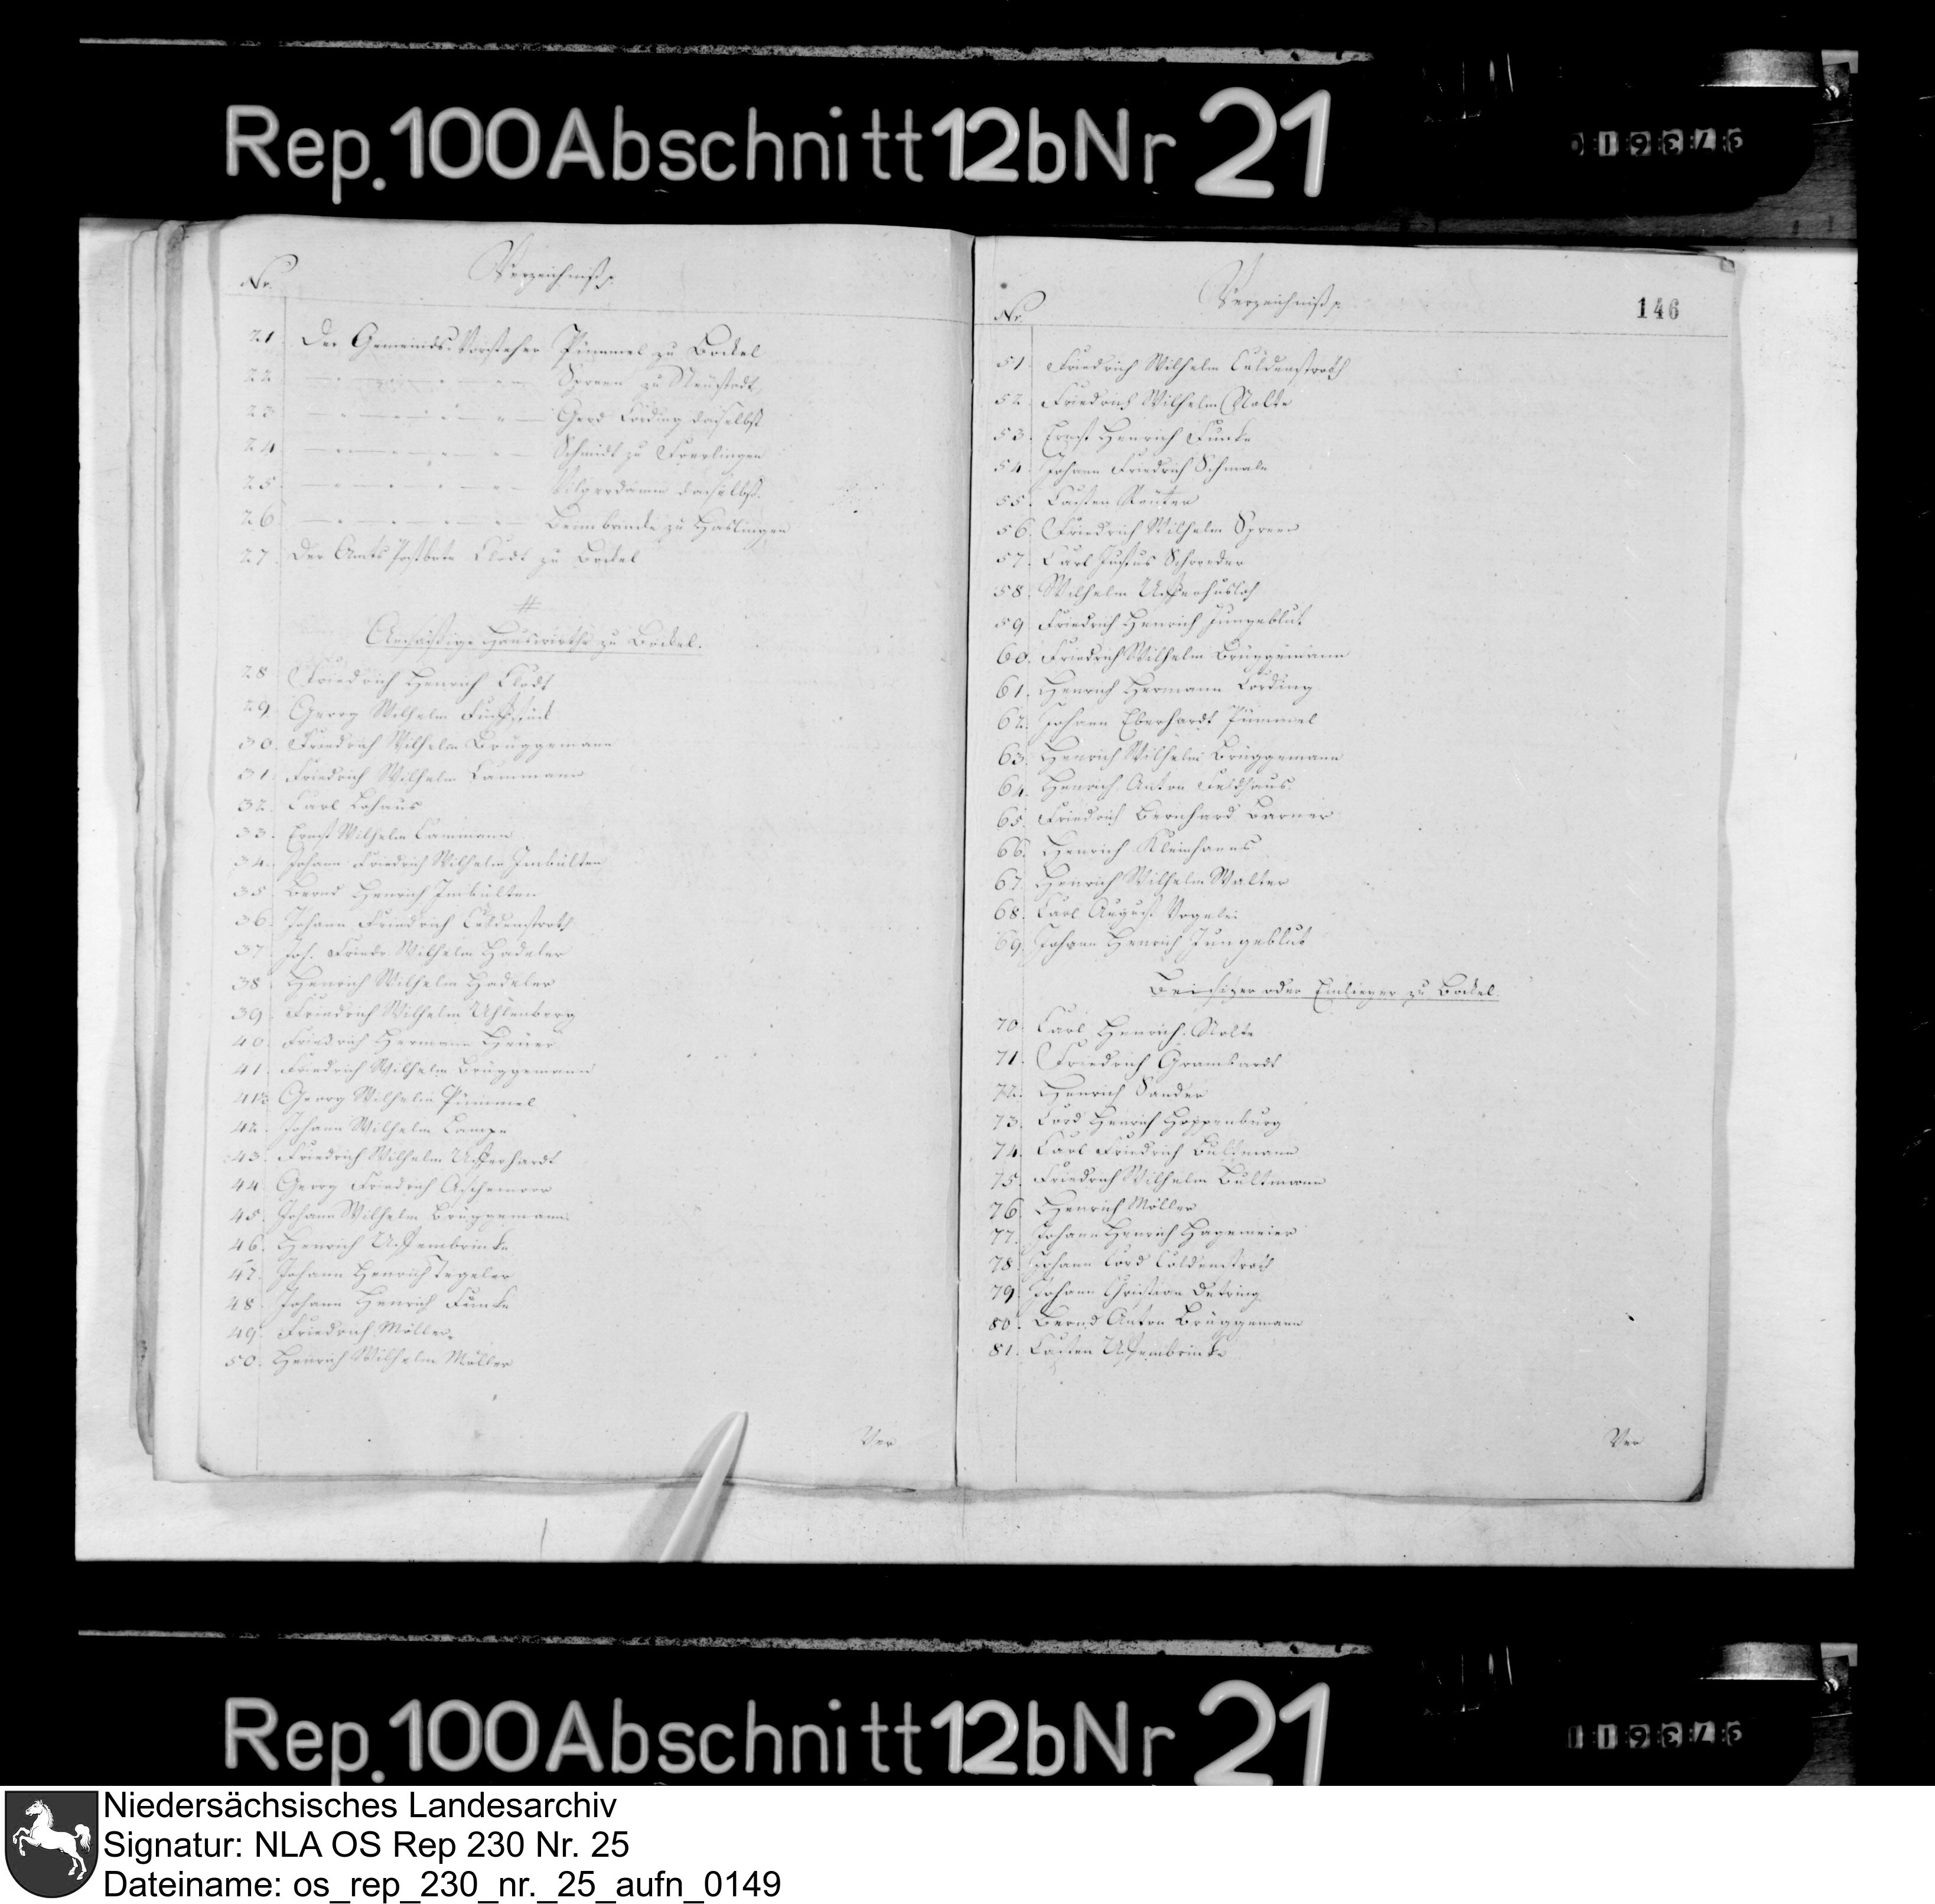 Rep. 100 Abschnitt 12b Nr 21
Nr. Verzeichniß p.
21. Der Gemeinds-Vorsteher Pümmel zu Bockel
22. — " — " — " — Spreen zu Neustadt,
23. — " — " — " — Gerd Cording daselbst
24. — " — " — " — Schmidt zu
25. — " — " — " — daselbst.
26. — " — " — " — zu Haslingen
27. Der Amts Postbote Clodt zu Bockel
#
Ansäßige Hauswirthe zu Bockel.
28. Friedrich Henrich Clodt
29. Georg Wilhelm
30. Friedrich Wilhelm Brüggemann
31. Friedrich Wilhelm Cammann
32. Carl Lohaus
33. Ernst Wilhelm Cammann
34. Johann Friedrich Wilhelm Imbülten
35. Bernd Henrich Imbülten
36. Johann Friedrich Culdenstroth
37. Joh. Friedr. Wilhelm Hadeler
38. Henrich Wilhelm Hadeler
39. Friedrich Wilhelm Uhlenberg
40. Friedrich Hermann
41. Friedrich Wilhelm Brüggemann
41½ Georg Wilhelm Pümmel
42. Johann Wilhelm Campe
43. Friedrich Wilhelm
44. Georg Friedrich Aschemoor
45. Johann Wilhelm Brüggemann
46. Henrich Uffenbrincke
47. Johann Henrich Tegeler
48. Johann Henrich Funcke
49. Friedrich Möller
50. Henrich Wilhelm Möller
Ver
146
Nr. Verzeichniß p.
51. Friedrich Wilhelm Culdenstroth
52. Friedrich Wilhelm Nolte
53. Ernst Henrich Funcke
54. Johann Friedrich Schmale
55. Casten Reuter
56. Friedrich Wilhelm Spreen
57. Carl Justus Schroeder
58. Wilhelm
59. Friedrich Henrich Jungeblut
60. Friedrich Wilhelm Brüggemann
61. Henrich Hermann Cording
62. Johann Eberhardt Pümmel
63. Henrich Wilhelm Brüggemann
64. Henrich Anton Feldhaus
65. Friedrich Bernhard Barner
66. Henrich Kleinhanns
67. Henrich Wilhelm Walter
68. Carl August
69. Johann Henrich Jungeblut
Beisitzer oder Einlieger zu Bockel.
70. Carl Henrich Nolte
71. Friedrich Grambardt
72. Henrich Sander
73. Cord Henrich Hoppenburg
74. Carl Friedrich Bultmann
75. Friedrich Wilhelm Bultmann
76. Henrich Möller
77. Johann Henrich Hagemeier
78. Johann Cord Coldenstroth
79. Johann Christian Detring
80. Bernd Anton Brüggemann
81. Casten Uffenbrincke
Ver
Rep. 100 Abschnitt 12b Nr 21
Niedersächsisches Landesarchiv
Signatur: NLA OS Rep 230 Nr. 25
Dateiname: os_rep_230_nr._25_aufn_0149